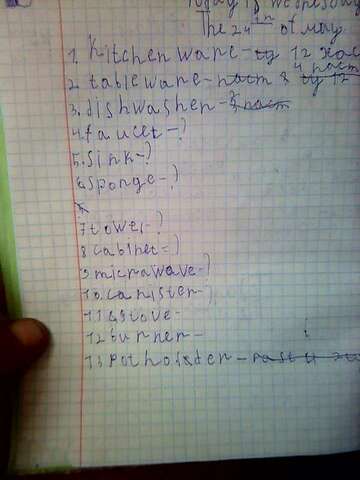 Today is wednesday
The 24th of may
1. kitchenware - 12
2. tableware - 4
3. dishwasher - ?
4. faucet - ?
5. sink - ?
6. sponge - ?
7. towel - ?
8 cabinet - ?
9 microwave - ?
10. canister - ?
11 a stove -
12 burner -
13 potholder -